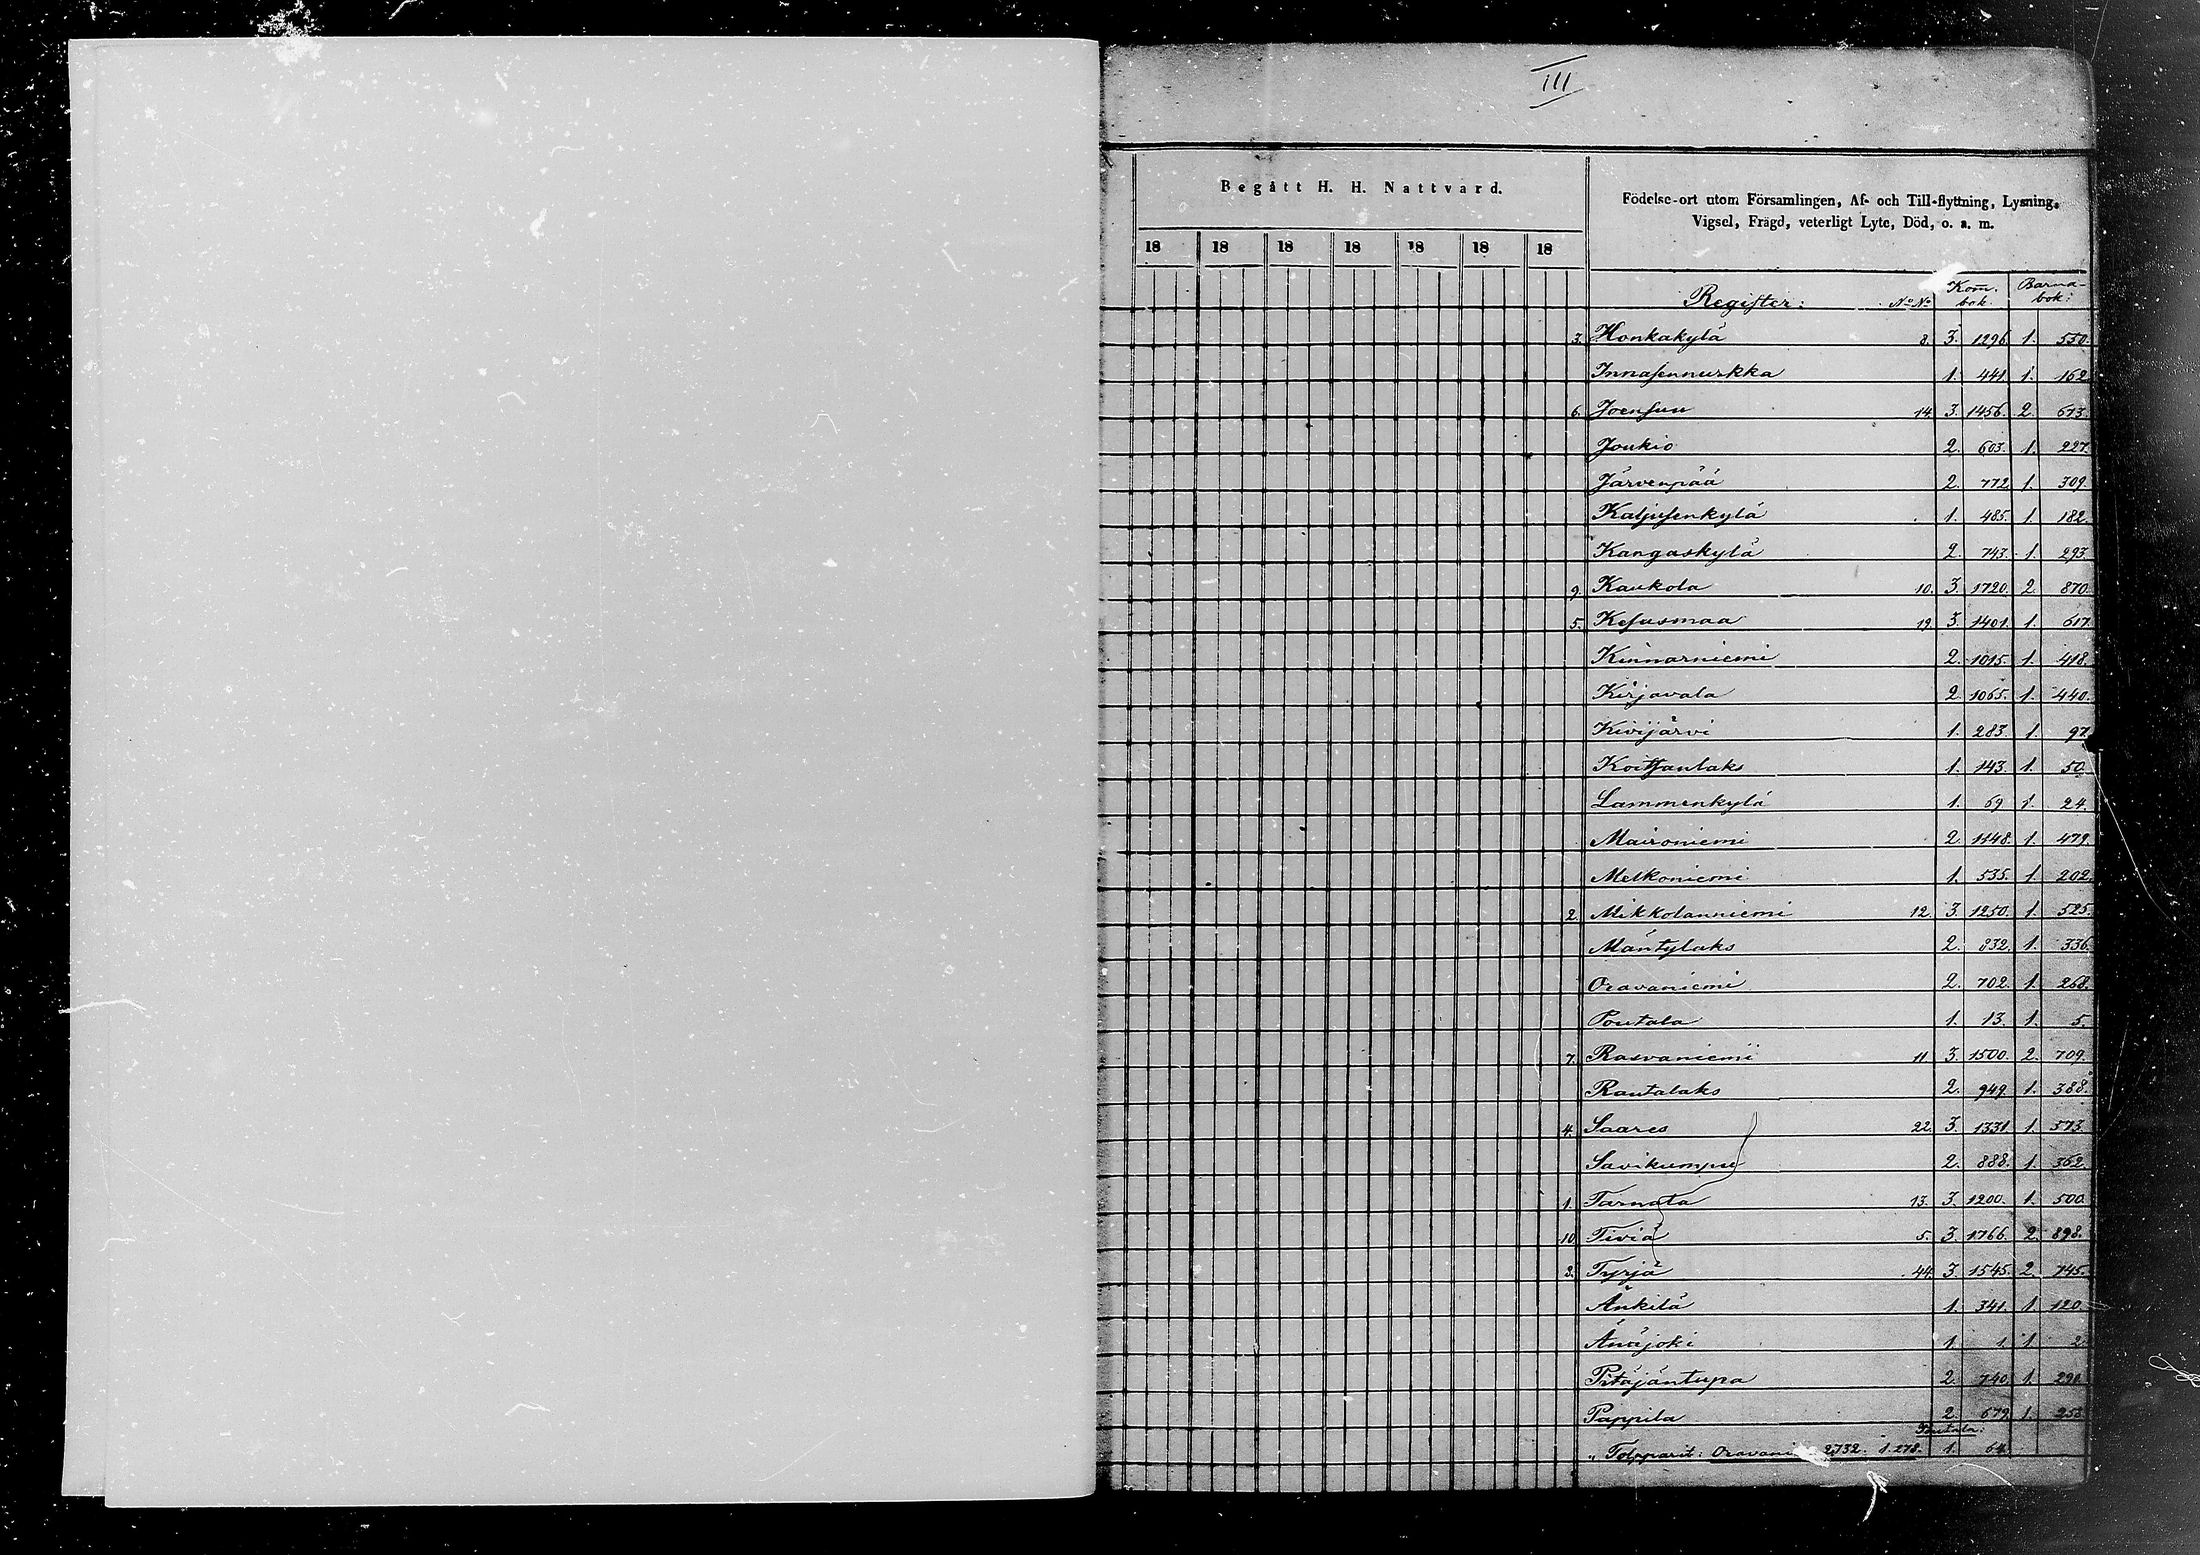 III
Begått H. H. Nattvard.
Födelse-ort utom Församlingen, Af- och Till-flyttning, Lysning,
Vigsel, Frägd, veterligt Lyte, Död, o. a. m.
18 18 18 18 18 18 18
Register: No No Kom. bok. Barna-bok:
3. Honkakylä 8. 3. 1296. 1. 550.
Innasennurkka 1. 441. 1. 162.
6. Joensuu 14. 3. 1456. 2. 673.
Joukio 2. 603. 1. 227.
Järvenpää 2. 772. 1. 309.
Kaljusenkylä 1. 485. 1. 182.
Kangaskylä 2. 743. 1. 293.
9. Kaukola 10. 3. 1720. 2. 870.
5. Kesusmaa 19. 3. 1401. 1. 617.
Kinnarniemi 2. 1015. 1. 418.
Kirjavala 2. 1065. 1. 440.
Kivijärvi 1. 283. 1. 97.
Koitsanlaks 1. 143. 1. 50.
Lammenkylä 1. 69. 1. 24.
Maironiemi 2. 1148. 1. 479.
Melkoniemi 1. 535. 1. 202.
2. Mikkolanniemi 12. 3. 1250. 1. 525.
Mäntylaks 2. 832. 1. 336.
Oravaniemi 2. 702. 1. 268.
Poutala 1. 13. 1. 5.
7. Rasvaniemi 11. 3. 1500. 2. 709.
Rautalaks 2. 949. 1. 388.
4. Saares 22. 3. 1331. 1. 573.
Savikumpu 2. 888. 1. 362.
1. Tarnala 13. 3. 1200. 1. 500.
10. Tiviä 5. 3. 1766. 2. 898.
8. Tyrjä 44. 3. 1545. 2. 745.
Änkilä 1. 341. 1. 120.
Äväjoki 1. 1. 1. 2.
Pitäjäntupa 2. 740. 1. 290.
Pappila 2. 679. 1. 258.
Poutala:
" Tolpparit: Oravani 2,732. 1. 278. 1. 64.